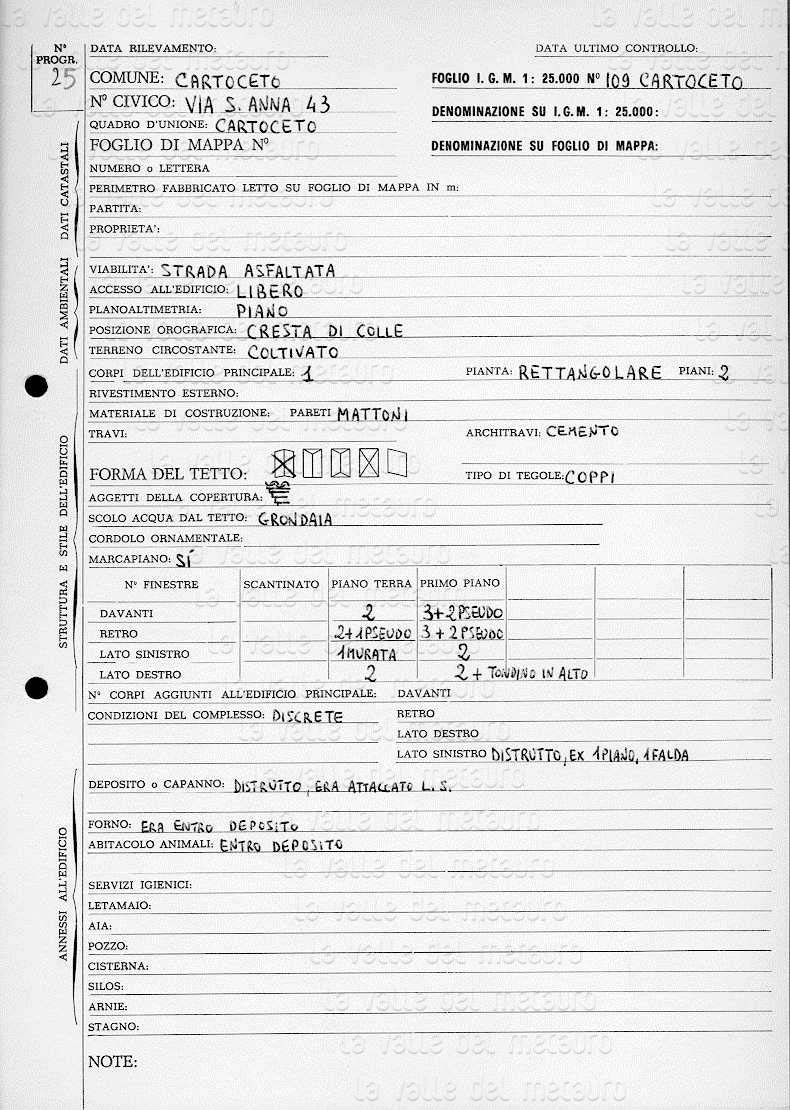 N° PROGR. 25
DATA RILEVAMENTO: DATA ULTIMO CONTROLLO:
COMUNE: CARTOCETO FOGLIO I. G. M. 1: 25.000 N° 109 CARTOCETO
N° CIVICO: VIA S. ANNA 43 DENOMINAZIONE SU I. G. M. 1: 25.000:
QUADRO D'UNIONE: CARTOCETO
FOGLIO DI MAPPA N° DENOMINAZIONE SU FOGLIO DI MAPPA:
NUMERO o LETTERA
PERIMETRO FABBRICATO LETTO SU FOGLIO DI MAPPA IN m:
PARTITA:
PROPRIETA':
DATI CATASTALI
VIABILITA': STRADA ASFALTATA
ACCESSO ALL'EDIFICIO: LIBERO
PLANOALTIMETRIA: PIANO
POSIZIONE OROGRAFICA: CRESTA DI COLLE
TERRENO CIRCOSTANTE: COLTIVATO
DATI AMBIENTALI
CORPI DELL'EDIFICIO PRINCIPALE: 1 PIANTA: RETTANGOLARE PIANI: 2
RIVESTIMENTO ESTERNO:
MATERIALE DI COSTRUZIONE: PARETI MATTONI
TRAVI: ARCHITRAVI: CEMENTO
FORMA DEL TETTO: TIPO DI TEGOLE: COPPI
AGGETTI DELLA COPERTURA:
SCOLO ACQUA DAL TETTO: GRONDAIA
CORDOLO ORNAMENTALE:
MARCAPIANO: SÍ
N° FINESTRE SCANTINATO PIANO TERRA PRIMO PIANO
DAVANTI 2 3+2 PSEUDO
RETRO 2+1 PSEUDO 3+2 PSEUDO
LATO SINISTRO 1 MURATA 2
LATO DESTRO 2 2 + TONDINO IN ALTO
STRUTTURA E STILE DELL'EDIFICIO
N° CORPI AGGIUNTI ALL'EDIFICIO PRINCIPALE: DAVANTI
CONDIZIONI DEL COMPLESSO: DISCRETE RETRO
LATO DESTRO
LATO SINISTRO DISTRUTTO, EX 1 PIANO, 1 FALDA
DEPOSITO o CAPANNO: DISTRUTTO, ERA ATTACCATO L. S.
FORNO: ERA ENTRO DEPOSITO
ABITACOLO ANIMALI: ENTRO DEPOSITO
SERVIZI IGIENICI:
LETAMAIO:
AIA:
POZZO:
CISTERNA:
SILOS:
ARNIE:
STAGNO:
ANNESSI ALL'EDIFICIO
NOTE:
la valle del metauro